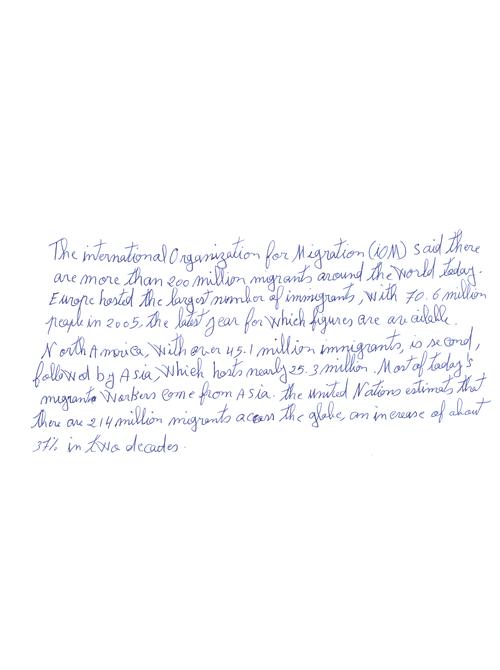 The international Organization for Migration (iOM) said there
are more than 200 million migrants around the world today.
Europe hosted the largest number of immigrants, with 70.6 million
people in 2005, the latest year for which figures are available.
North America, with over 45.1 million immigrants, is second,
followed by Asia, which hosts nearly 25.3 million. Most of today's
migrants workers come from Asia. the united Nations estimats that
there are 214 million migrants across the globe, an increase of about
37% in two decades.